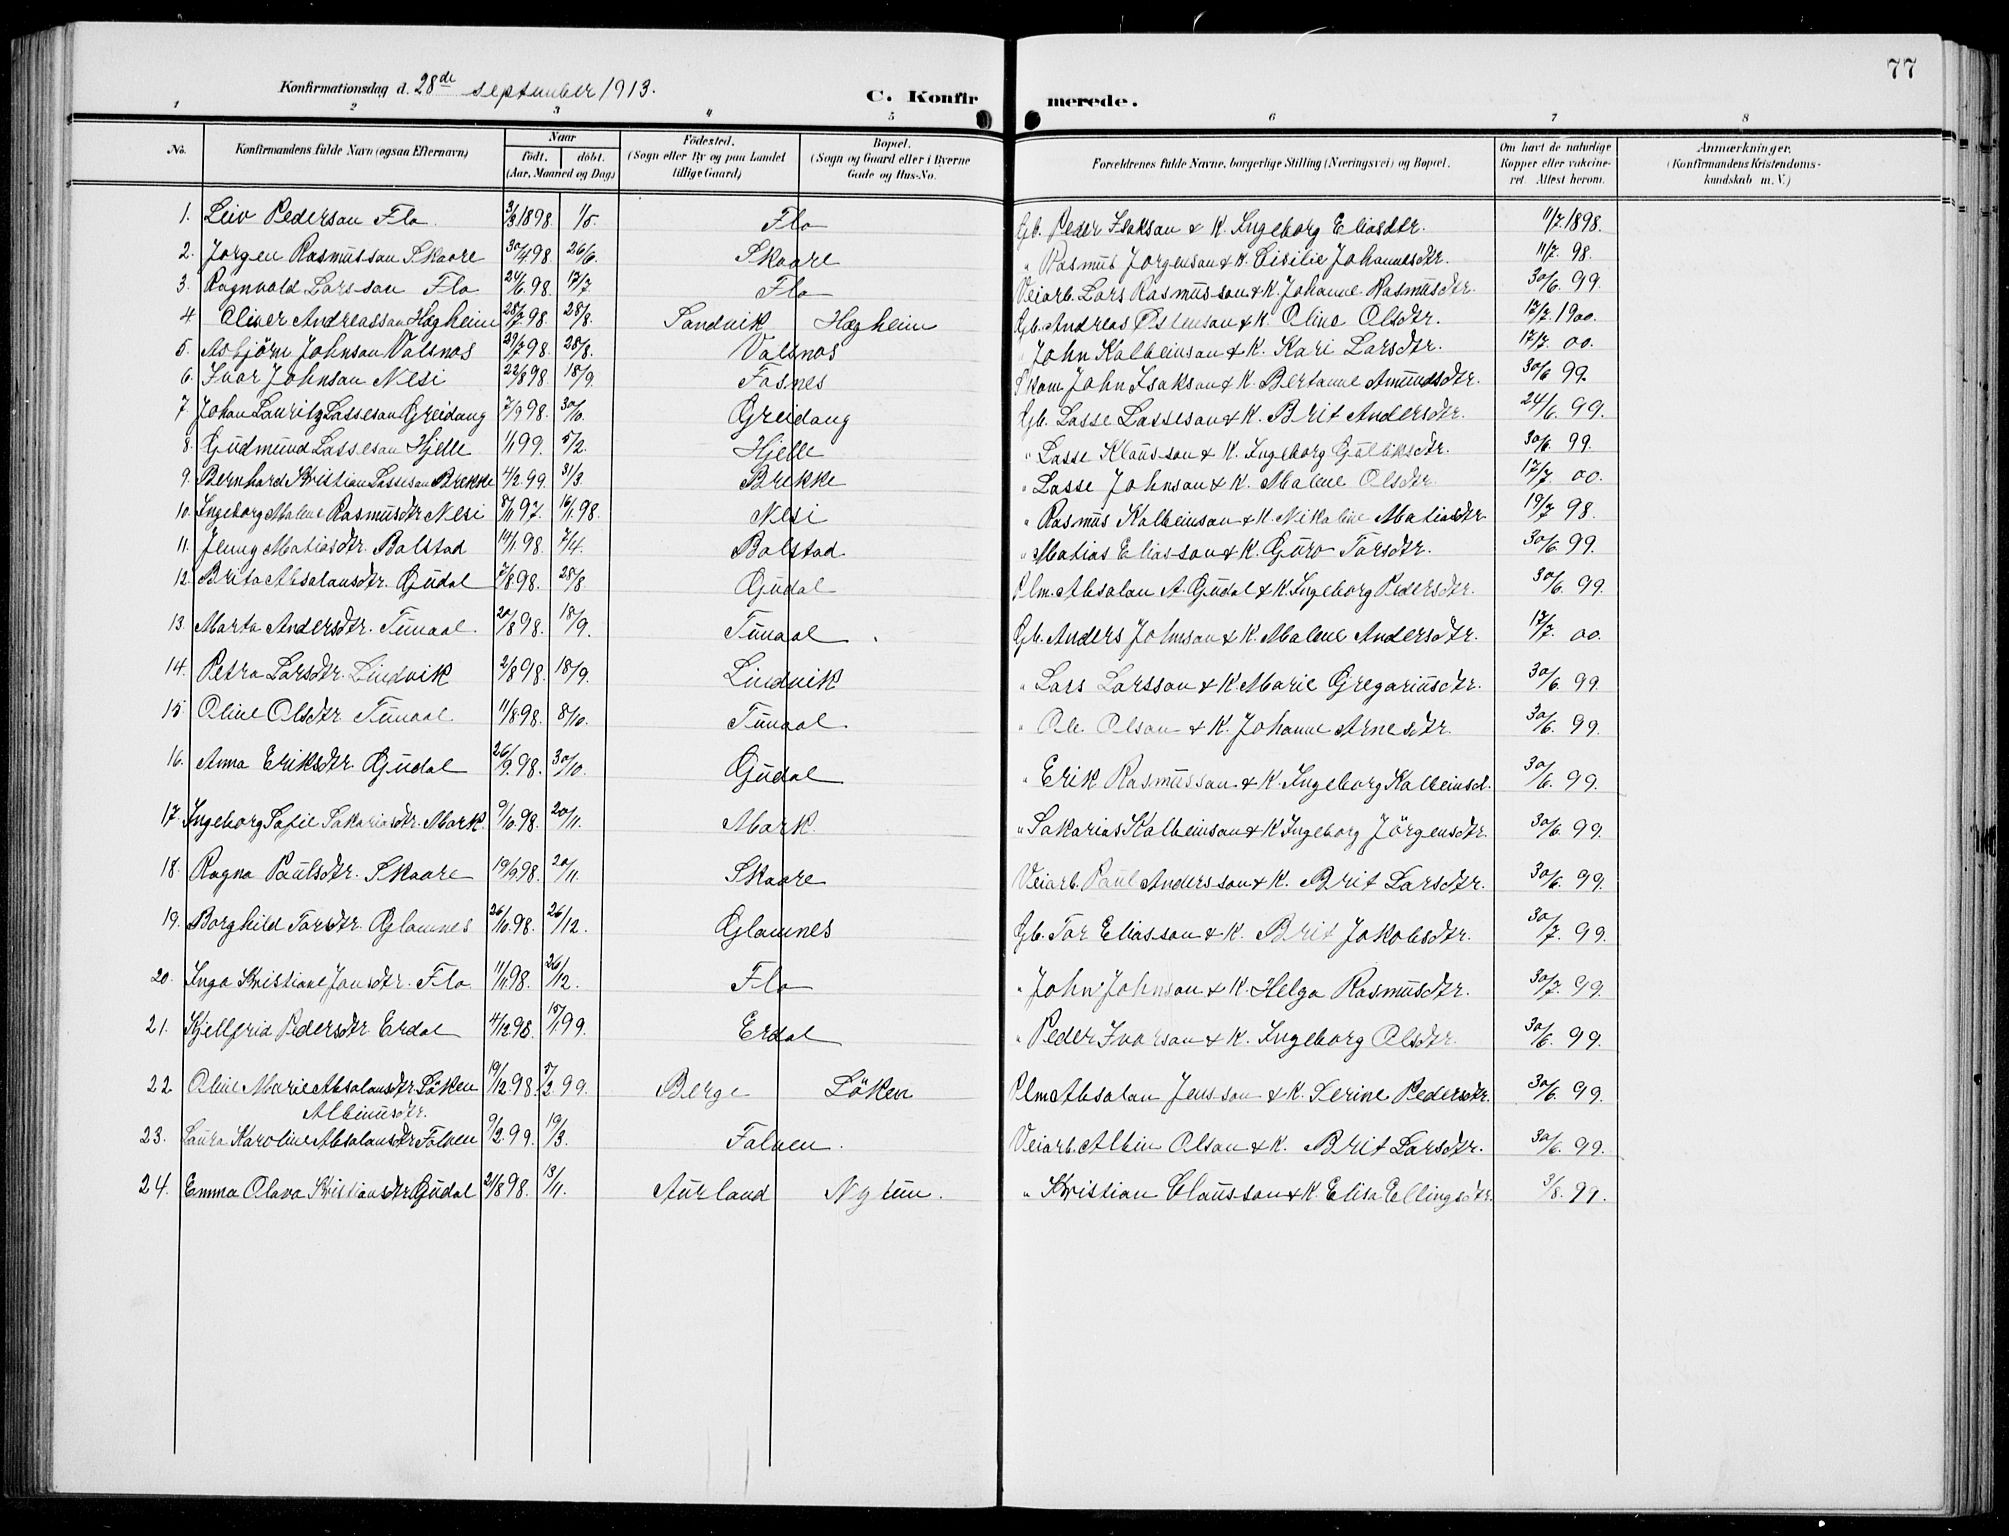 77
Konfirmationsdag d. 28de september 1913.
C. Konfirmerede.
1 2 3 4 5 6 7 8
No.
Konfirmandens fulde Navn (ogsaa Efternavn)
Naar
födt. döbt.
(Aar, Maaned og Dag)
Födested.
(Sogn eller By og paa Landet
tillige Gaard)
Bopæl.
(Sogn og Gaard eller i Byerne
Gade og Hus-No.
Forældrenes fulde Navne, borgerlige Stilling (Næringsvei) og Bopæl.
Om havt de naturlige
Kopper eller vakcine-
ret. Attest herom.
Anmærkninger.
(Konfirmandens Kristendoms-
kundskab m. V.)
1. Leiv Pederson Flo. 3/3 1898. 1/5. Flo Gb. Peder Isakson & K. Ingeborg Eliasdtr. 11/7. 1898.
2. Jorgen Rasmusson Skaare 30/4 98. 26/6. Skaare " Rasmus Jorgenson & K. Cisilie Johannesdtr. 11/7. 98.
3. Ragnvald Larsson Flo 24/6. 98. 17/7. Flo Veiarb. Lars Rasmusson & K. Johanne Rasmusdtr. 30/6. 99.
4 Oliver Andreasson Hægheim 28/7. 98. 28/8. Sandvik Hægheim Gb. Andreas Østenson & K. Oline Olsdtr. 17/7. 1900.
5. Asbjörn Johnson Valsnos 29/7 98. 28/8. Valsnos " John Kolbeinson & K. Kari Larsdtr. 17/7. 00.
6. Ivar Johnson Nesi 22/8 98. 18/9. Fosnes Skom. John Isakson & K. Bertanne Amundsdtr. 30/6 99.
7 Johan Lauritz Lasseson Greidung 7/9 98. 30/10. Greidung Gb. Lasse Lasseson & K. Brit Andersdtr. 24/6. 99.
8. Gudmund Lasseson Hjelle 1/1 99. 5/2. Hjelle " Lasse Klausson & K. Ingeborg Guliksdtr. 30/6. 99.
9. Bernhard Kristian Lasseson Brekke 4/2. 99. 3/3. Brekke " Lasse Johnson & K. Malene Olsdtr. 17/7. 00.
10. Ingeborg Malene Rasmusdtr Nesi 8/11 97. 16/1. 98. Nesi " Rasmus Kolbeinson & K. Nikoline Matiasdtr. 19/7 98.
11. Jenny Matiasdtr. Bolstad 14/1. 98. 7/4. Bolstad " Matias Eliasson & K. Guro Torsdtr. 30/6. 99.
12. Brita Absalonsdtr. Gjudal 7/8. 98. 28/8. Gjudal Plm. Absalon A. Gjudal & K. Ingeborg Pedersdtr. 30/6. 99.
13. Marta Andersdtr. Tunaal. 20/8 98. 18/9. Tunaal. Gb. Anders Johnson & K. Malene Andersdtr. 17/7. 00.
14. Petra Larsdtr. Lindvik 2/8 98. 18/9. Lindvik " Lars Larsson & K. Marie Gregariusdtr. 30/6. 99.
15. Oline Olsdtr Tunaal. 11/8 98. 8/10. Tunaal. " Ole Olson & K. Johanne Arnesdtr. 30/6. 99.
16. Anna Eriksdtr. Gjudal 26/9. 98. 30/10. Gjudal " Erik Rasmusson & K. Ingeborg Kolbeinsd. 30/6. 99.
17. Ingeborg Sofie Sakariasdtr. Mork 9/10. 98. 20/11. Mork. " Sakarias Kolbeinson & K Ingeborg Jörgensdtr. 30/6. 99.
18. Ragna Paulsdtr. Skaare 19/9 98. 20/11. Skaare Veiarb. Paul Andersson & K. Brit Larsdtr. 30/6. 99.
19. Borghild Torsdtr. Glomnes 26/10. 98. 26/12. Glomnes Gb. Tor Eliasson & K. Brit Jakobsdtr. 30/7. 99.
20. Inga Kristiane Jonsdtr. Flo 11/11 98. 26/12. Flo " John Johnson & K. Helga Rasmusdtr. 30/7. 99.
21. Kjellfrid Pedersdtr. Erdal 4/12 98. 15/1 99. Erdal " Peder Ivarson & K. Ingeborg Olsdtr. 30/6. 99.
22 Oline Marie Absalonsdtr. Löken 19/12 98. 5/2 99. Berge Löken Plm Absalon Jensson & K. Serine Pedersdtr. 30/6. 99.
Albinusdtr.
23. Laura Karoline Absalonsdtr. Folven 9/2. 99. 19/3. Folven. Veiarb. Albin Olson & K. Brit Larsdtr. 30/6. 99.
24. Emma Olava Kristiansdtr Gjudal 21/8 98. 13/11. Aurland Nytun. " Kristian Clausson & K Elisa Ellingsdtr. 3/8. 99.